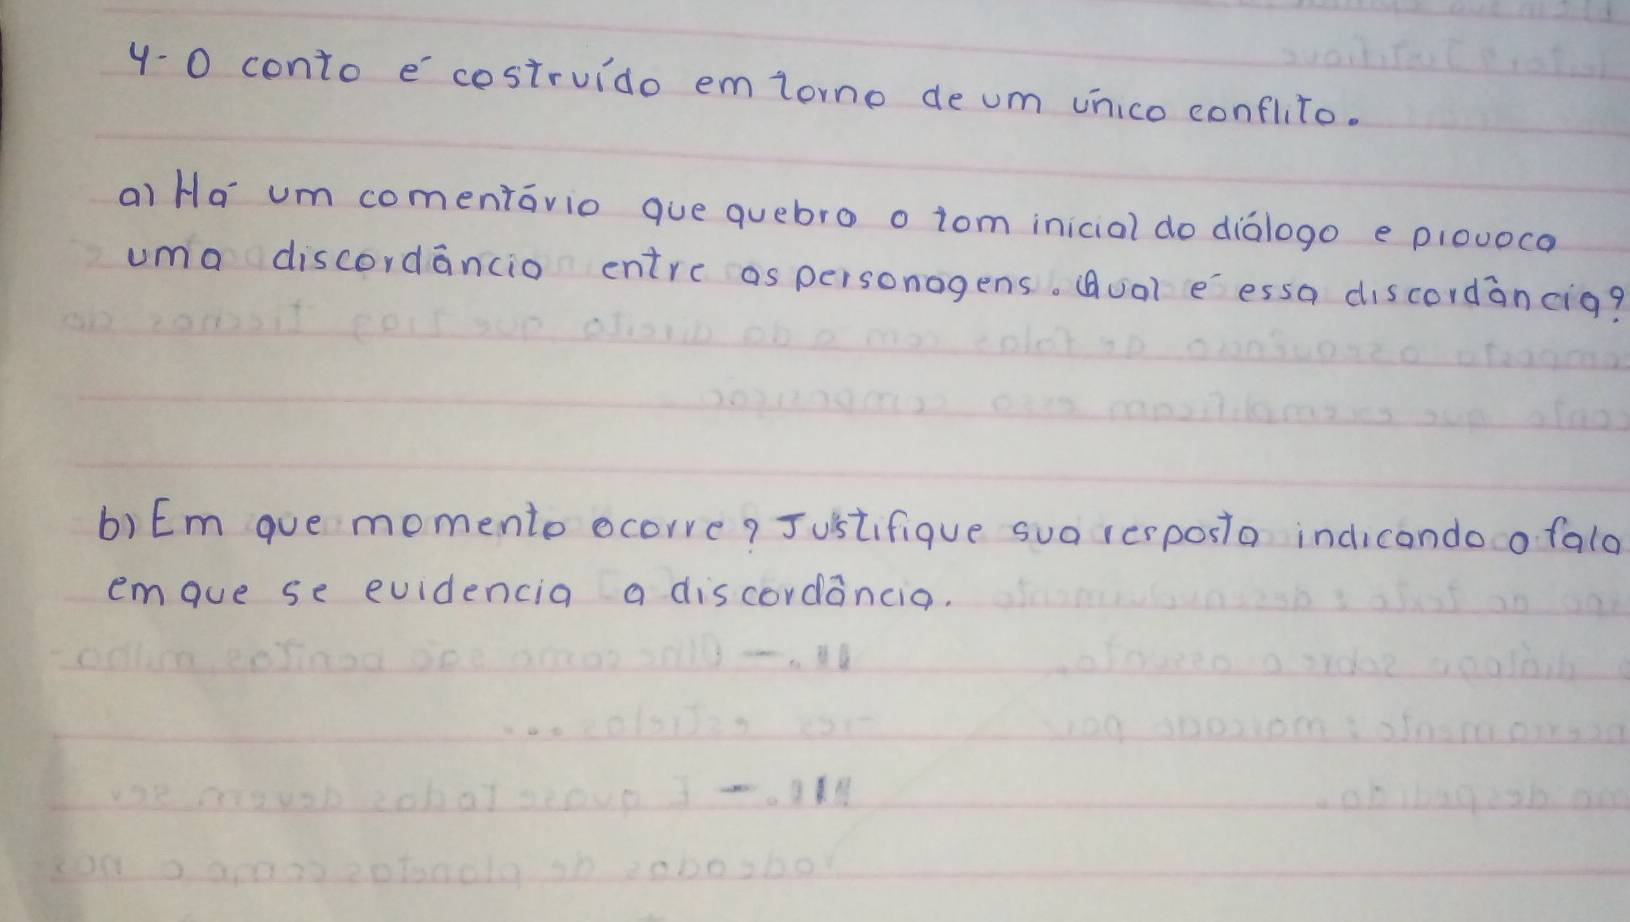 4- O conto é costruído em torno de um único conflito.
a) Há um comentário que quebra o tom inicial do diálogo e provoca
uma discordância entre as personagens. Qual é essa discordância?
b) Em que momento ocorre? Justifique sua resposta indicando a fala
em que se evidencia a discordância.